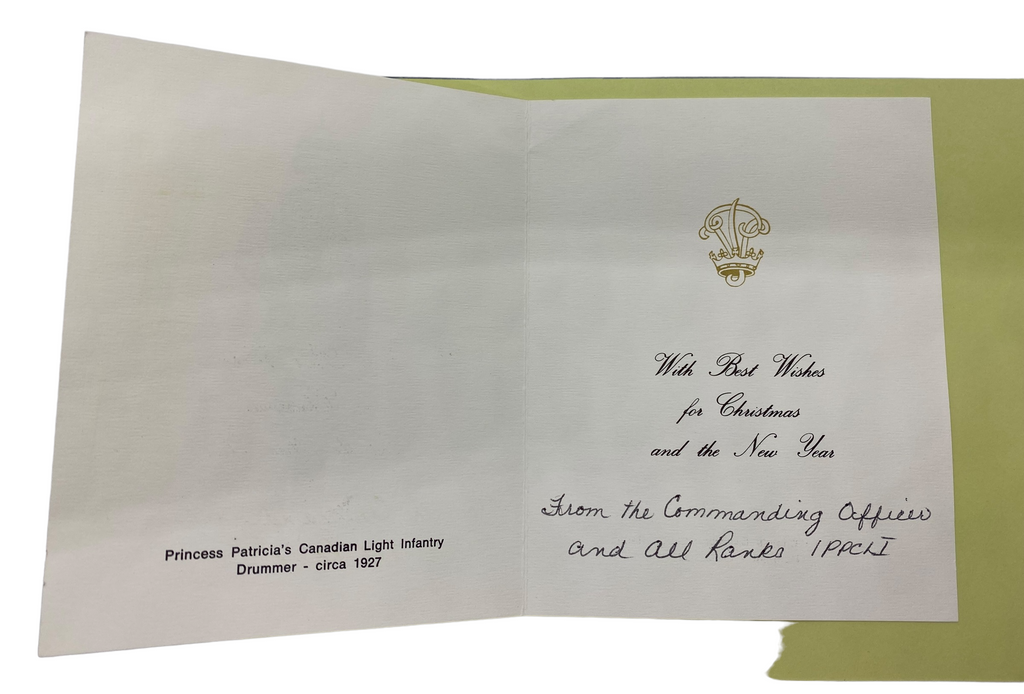 Princess Patricia's Canadian Light Infantry
Drummer - circa 1927
With Best Wishes
for Christmas
and the New Year
From the Commanding Officer
and All Ranks 1PPCLI